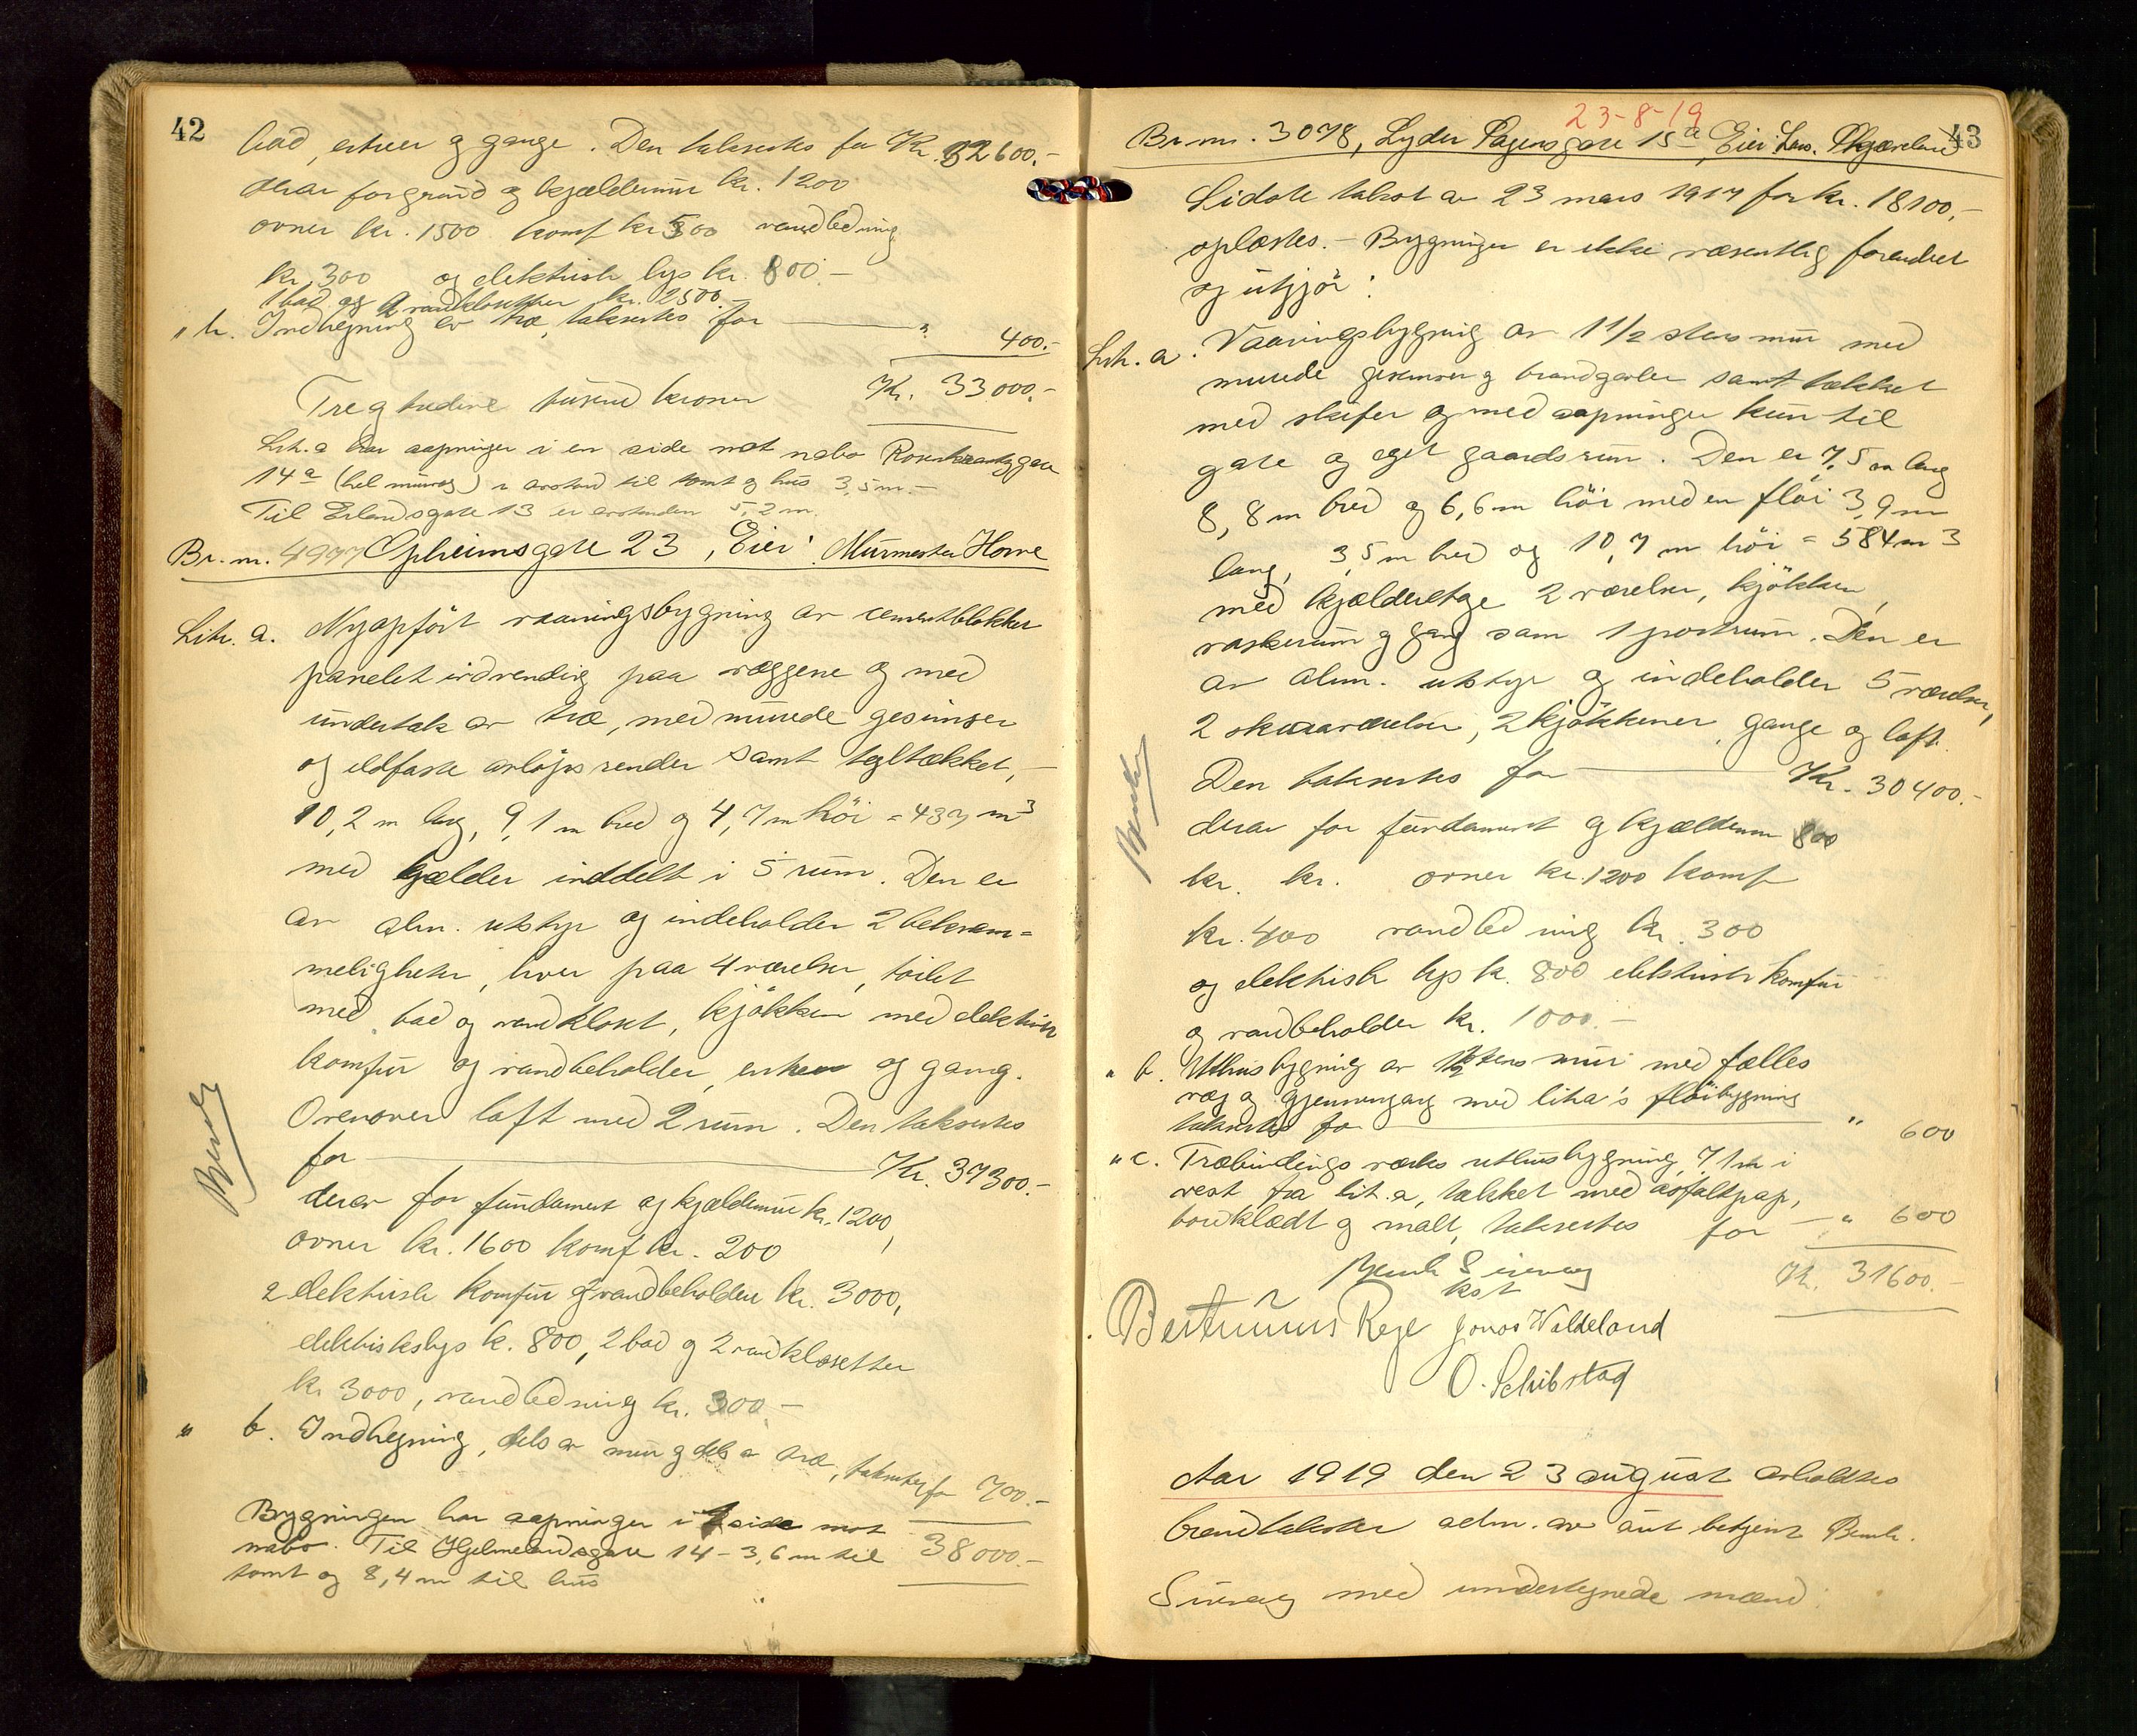 42
bad, entreer og gange. Den takseres for Kr. 32600.-
derav for grund og kjældermur kr. 1200
ovner kr. 1500 komf kr 500 vandledning
kr. 300 og elektrisk lys kr. 800.-
1 bad og vandklosetter kr. 2500.-
" b. Indhegning av træ, takseres for " 400.-
Kr. 33000.-
Treogtredive tusend kroner
Litr. a har aapninger i en side mot nabo Rosenkrantzgate
14a (hel mur) i avstand til tomt og hus 3,5 m.-
Til Erlandsgate 13 er avstanden 5,2 m.
Br. nr. 4977 Opheimsgate 23, Eier: Murmester Hovve
Litr. a. Nyopført vaaningsbygning av cementblokker
panelet indvendig paa væggene og med
undertak av træ, med murede gesimser
og ildfaste avløpsrender samt tegltækket,
10,2 m lang, 9,1 m bred og 4,7 m høi = 437 m3
med kjælder inddelt i 5 rum. Den er
av alm. utstyr og indeholder 2 bekvem=
meligheter, hver paa 4 værelser, toilet
med bad og vandkloset, kjøkken med elektrisk
komfur og vandbeholder, entree og gang.
Ovenover loft med 2 rum. Den takseres
for Kr. 37300.-
derav for fundament og kjældermur kr. 1200,
ovner kr. 1600 komf kr. 200
2 elektrisk komfur og vandbeholdere kr. 3000,
elektrisk lys kr. 800, 2 bad og 2 vandklosetter
kr 3000, vandledning kr. 300.-
" b. Indhegning, dels av mur og dels av træ, takseres for 700.-
Bygningen har aapninger i 1 side mot
nabo. Til Hjelmelandsgate 14 - 3,6 m til 38000.-
tomt og 8,4 m til hus
23-8-19
43
Br. nr. 3078, Lyder Sagensgate 15a Eier: Lars. Skjæveland
Sidste takst av 23 mars 1917 for kr. 18100,-
oplæstes. - Bygningen er ikke væsentlig forandret
og utgjør:
Litr. a. Vaaningsbygning av 1 1/2 stens mur med
murede gesimser og brandgavler samt tækket
med skifer og med aapninger kun til
gate og eget gaardsrum. Den er 7,5 m lang
8,8 m bred og 6,6 m høi med en fløi 3,9 m
lang, 3,5 m bred og 10,7 m høi = 584 m3
med kjælderetage 2 værelser, kjøkken,
vaskerum og gang samt 1 postrum. Den er
av alm. utstyr og indeholder 5 værelser,
2 skraaværelser, 2 kjøkkener, gange og loft.
Den takseres for Kr. 30400.-
derav for fundament og kjældermur 800
kr. kr. ovner kr. 1200 komf
kr. 400 vandledning kr. 300
og elektrisk lys kr. 800 elektrisk komfur
og vandbeholder kr. 1000.-
" b. Uthusbygning av 1/2 stens mur med fælles
væg og gjennemgang med litr a's fløibygning
takseres for " 600
" c. Træbindingsverks uthusbygning, 7,1 m i
vest fra lit. a, tækket med asfaltpap,
bordklædt og malt, takseres for " 600
Kr. 31600.-
Bernh Sirevag
kst
Bertinius Rege Jonas Waldeland
O. Schibstad
Aar 1919 den 23 august avholdtes
brandtakster adm. av aut betjent Bernh.
Sirevag med undertegnede mænd: